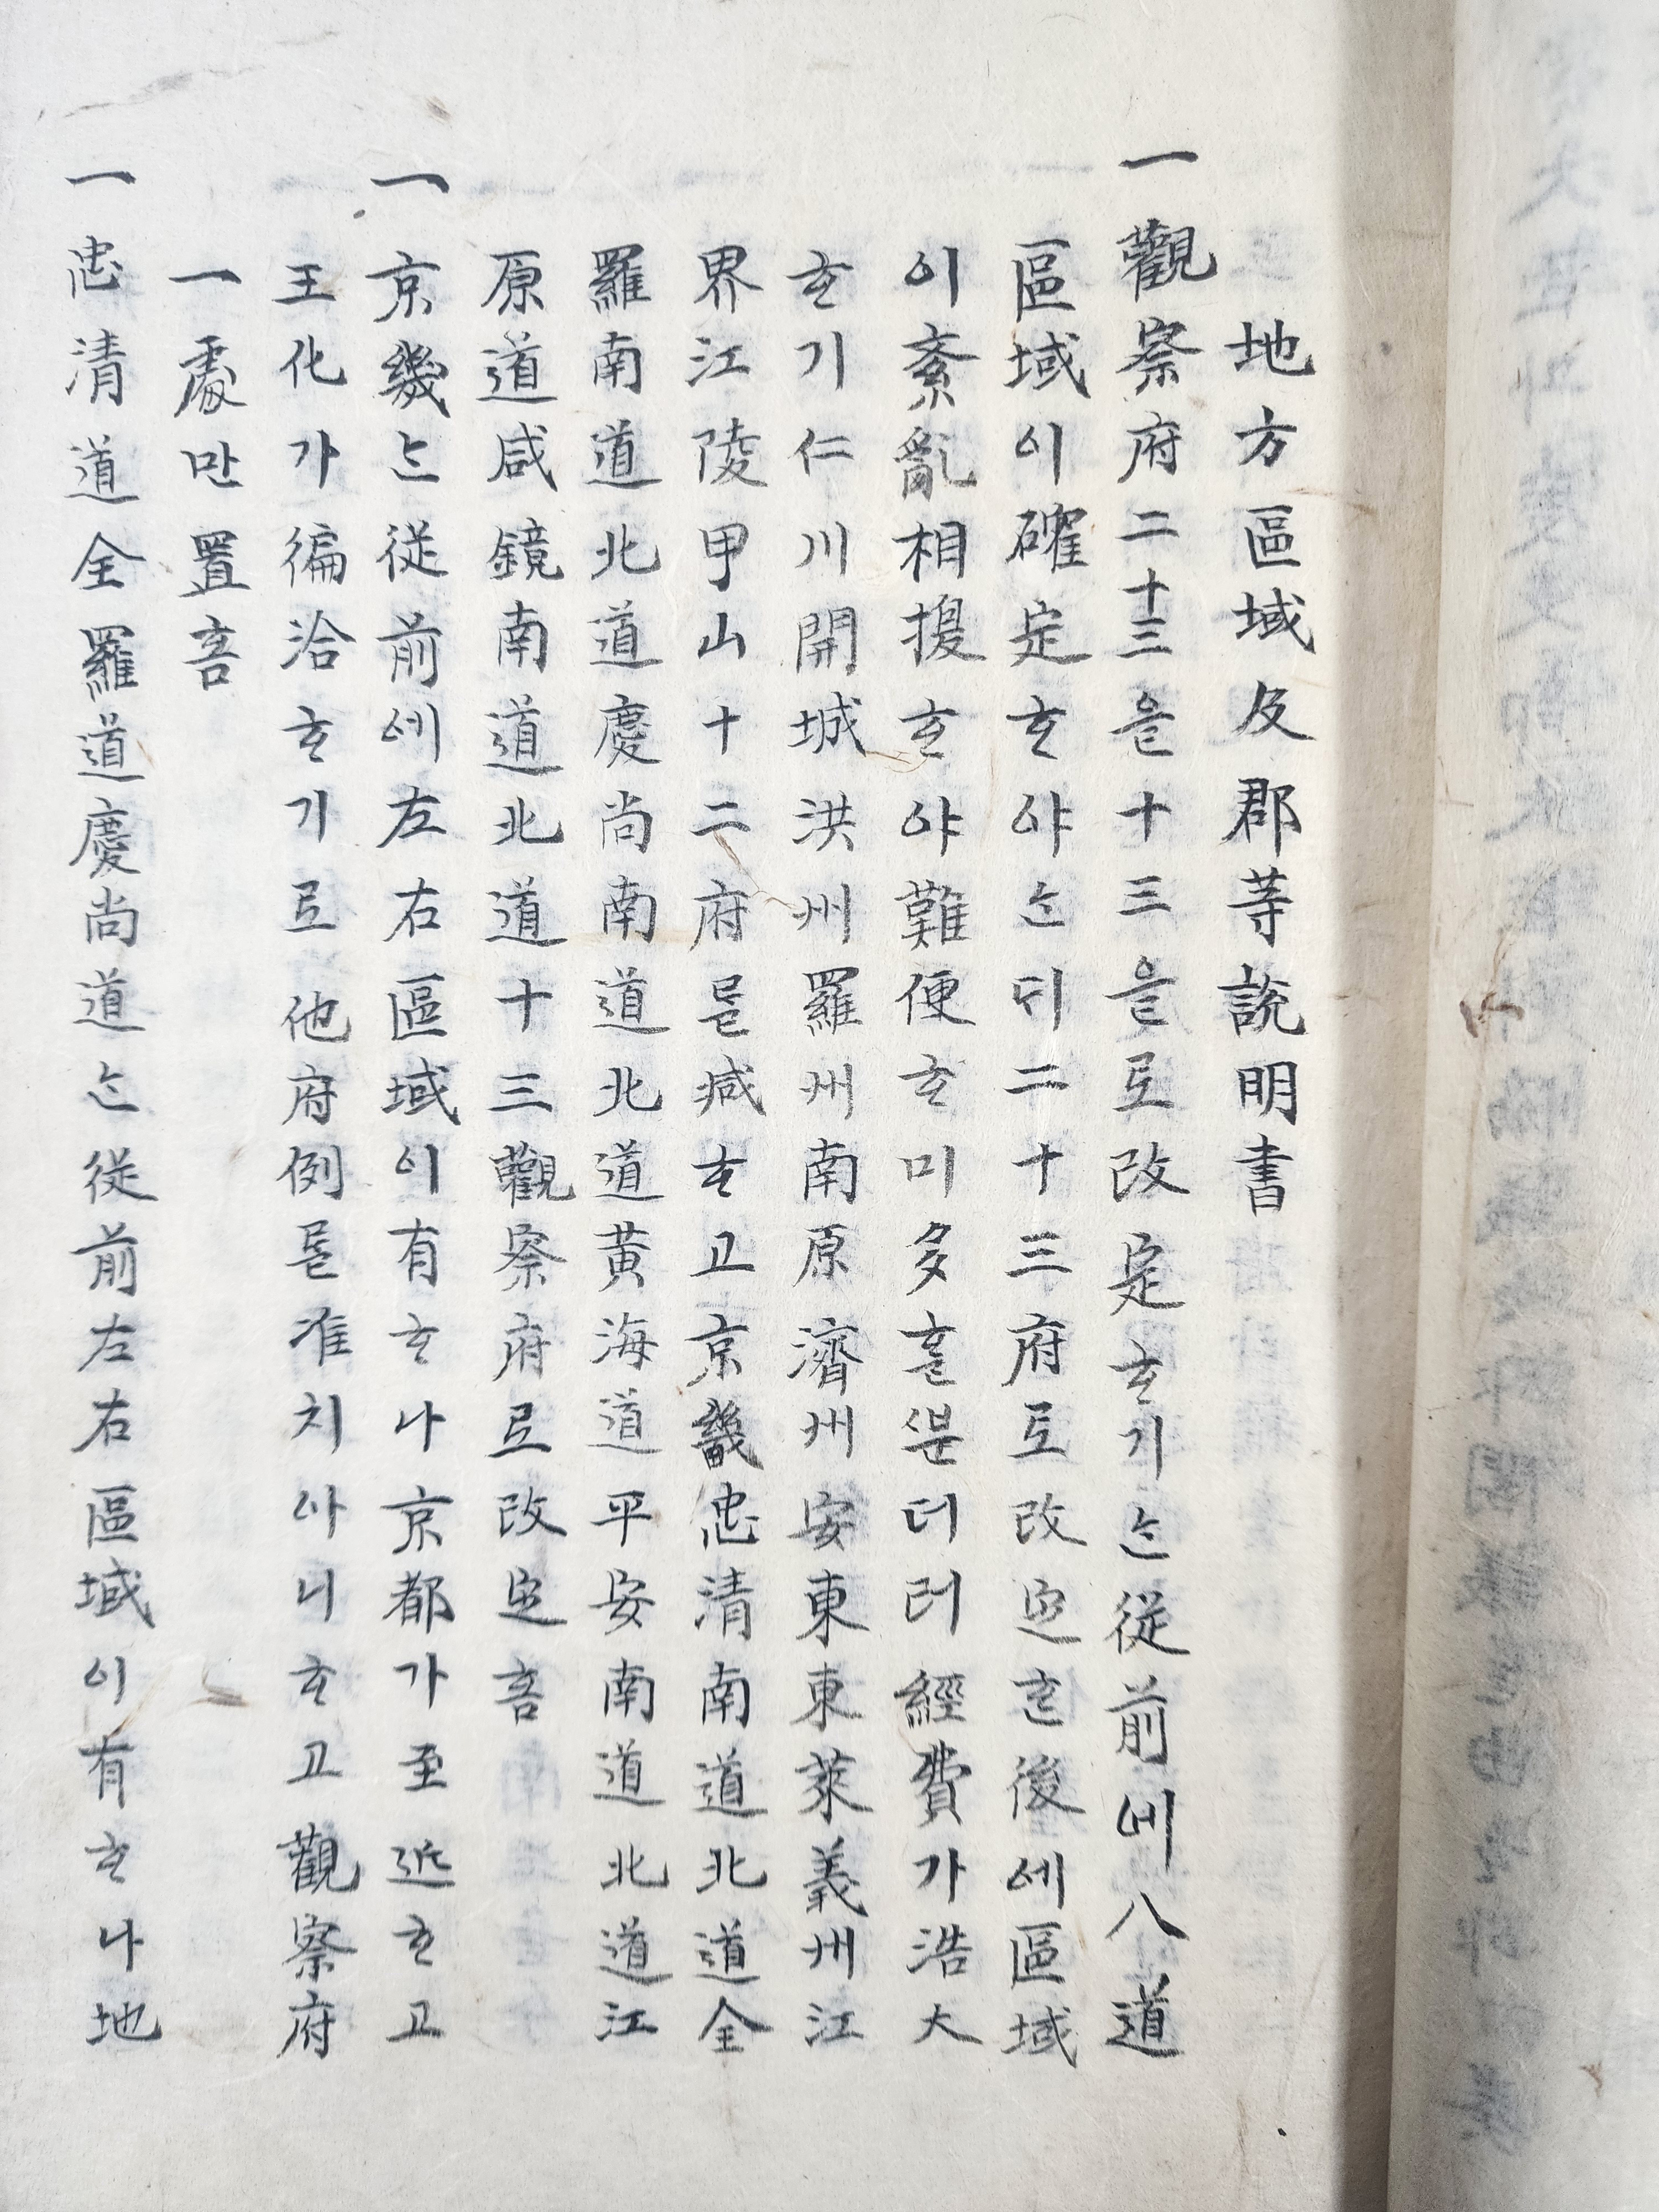 地方區域及郡等說明書
一觀察府二十三을十三을로改定ᄒᆞ기ᄂᆞᆫ從前에八道
區域이確定ᄒᆞ야ᄂᆞᆫᄃᆡ二十三府로改定ᄒᆞᆫ後에區域
이紊亂相換ᄒᆞ야難便ᄒᆞ미多ᄒᆞᆯᄲᅮᆫ더러經費가浩大
ᄒᆞ기仁川開城洪州羅州南原濟州安東東萊義州江
界江陵甲山十二府를減ᄒᆞ고京畿忠清南道北道全
羅南道北道慶尚南道北道黃海道平安南道北道江
原道咸鏡南道北道十三觀察府로改定홈
一京畿ᄂᆞᆫ從前에左右區域이有ᄒᆞ나京都가至近ᄒᆞ고
王化가徧洽ᄒᆞ기로他府例를准치아니ᄒᆞ고觀察府
一處만置홈
一忠清道全羅道慶尚道ᄂᆞᆫ從前左右區域이有ᄒᆞ나地